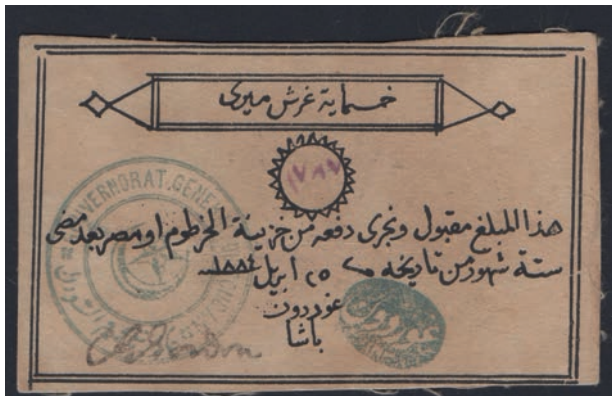 خمسماية غرش ميرى
١٧٨٧
هذا المبلغ مقبول ونجرى دفعه من خزينة الخرطوم او مصر بعد مضى
ستة شهور من تاريخه ٢٥ ابريل ١٨٨٤
غوردون
باشا
VERNORAT.GENE
C G Gordon